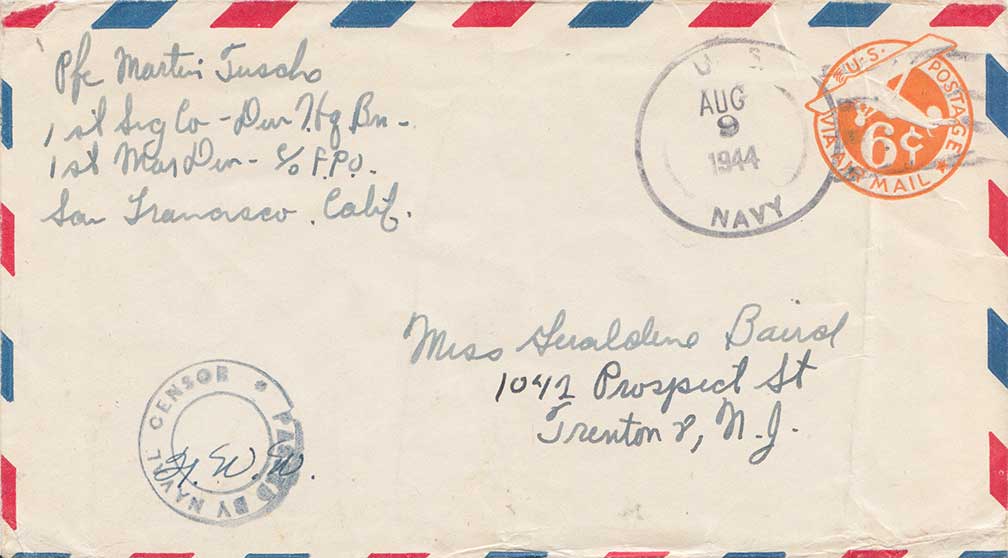 Pfc Martin Tuscho
1st Sig Co - Div Hq Bn -
1st Mar Div - c/o F.P.O.
San Francisco, Calif.
U S
AUG
9
1944
NAVY
U.S. POSTAGE
6¢
VIA AIR MAIL
Miss Geraldine Baird
1042 Prospect St
Trenton 8, N.J.
PASSED BY NAVAL CENSOR
H. W. W.